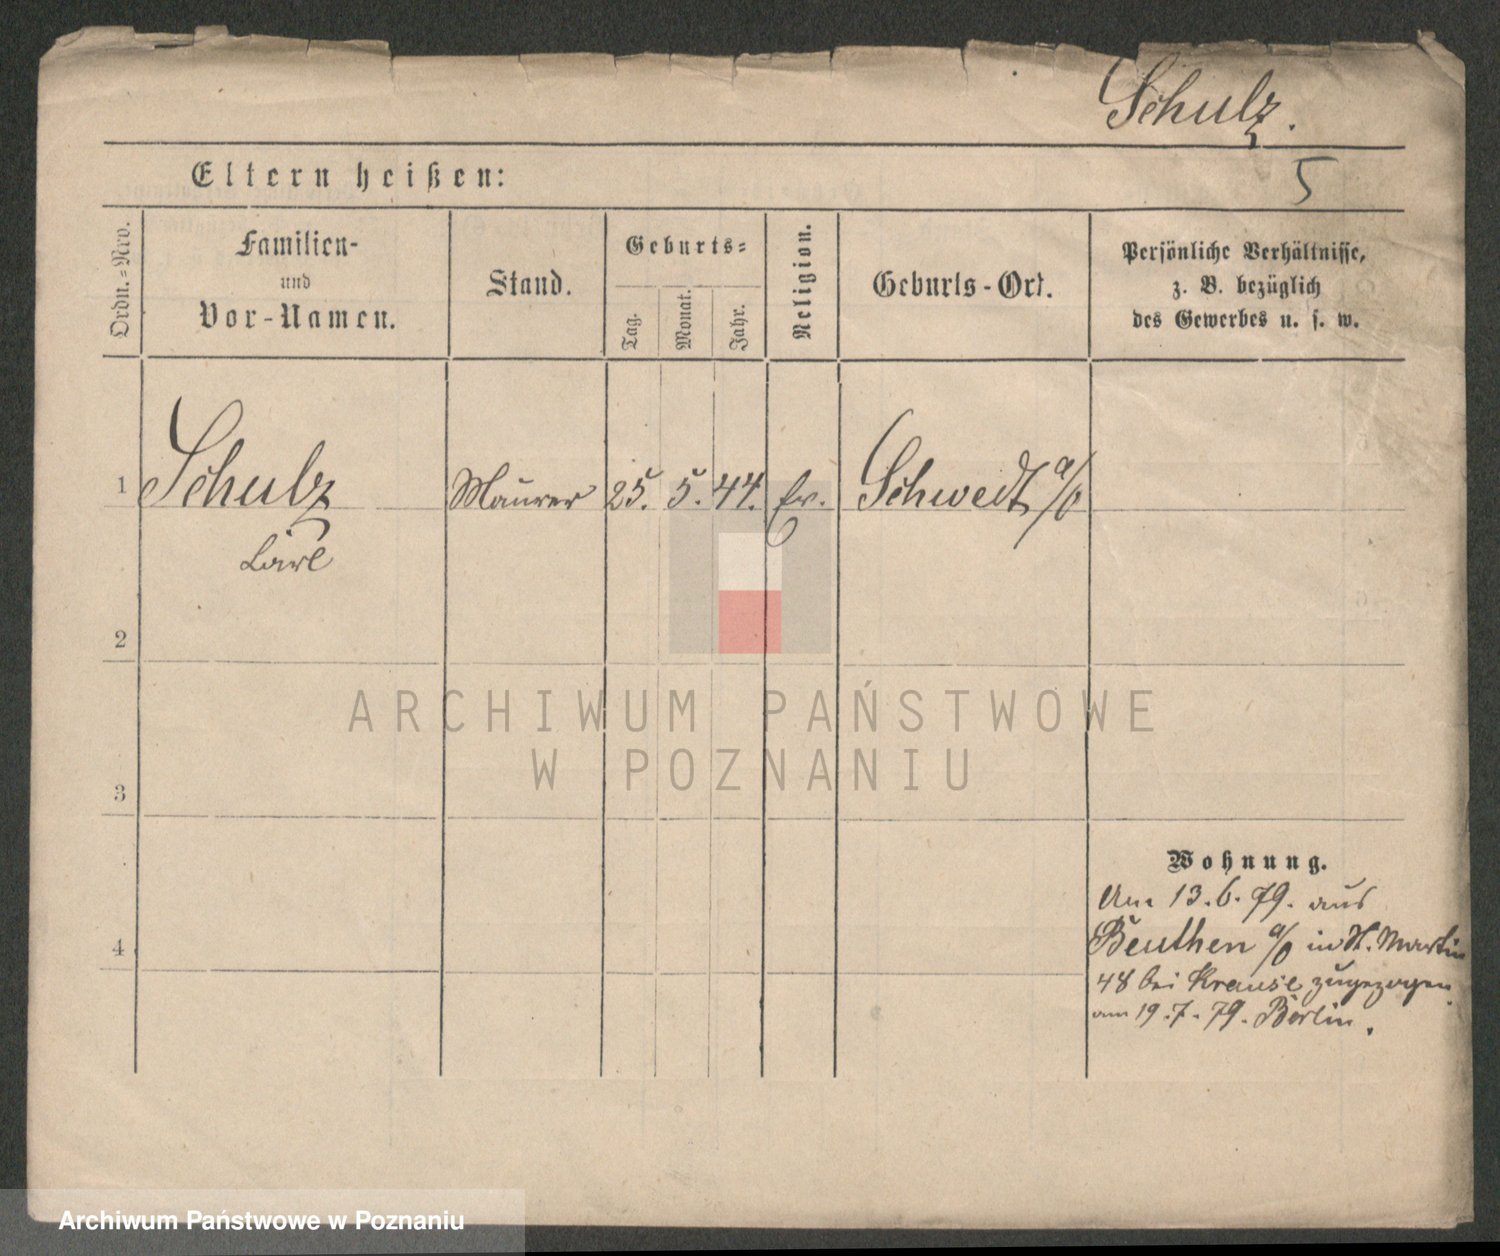 Schulz.
Eltern heißen:
5
Ordn.=Nro.
Familien-
und
Vor-Namen.
Stand.
Geburts=
Tag.
Monat.
Jahr.
Religion.
Geburts-Ort.
Persönliche Verhältnisse,
z. B. bezüglich
des Gewerbes u. s. w.
1 Schulz Maurer 25. 5. 44. Ev. Schwedt a/O
Carl
2
3
4
Wohnung.
Am 13.6.79. aus
Beuthen a/O in St. Martin
48 bei Krause zugezogen
am 19.7.79. Berlin.
ARCHIWUM PAŃSTWOWE
W POZNANIU
Archiwum Państwowe w Poznaniu